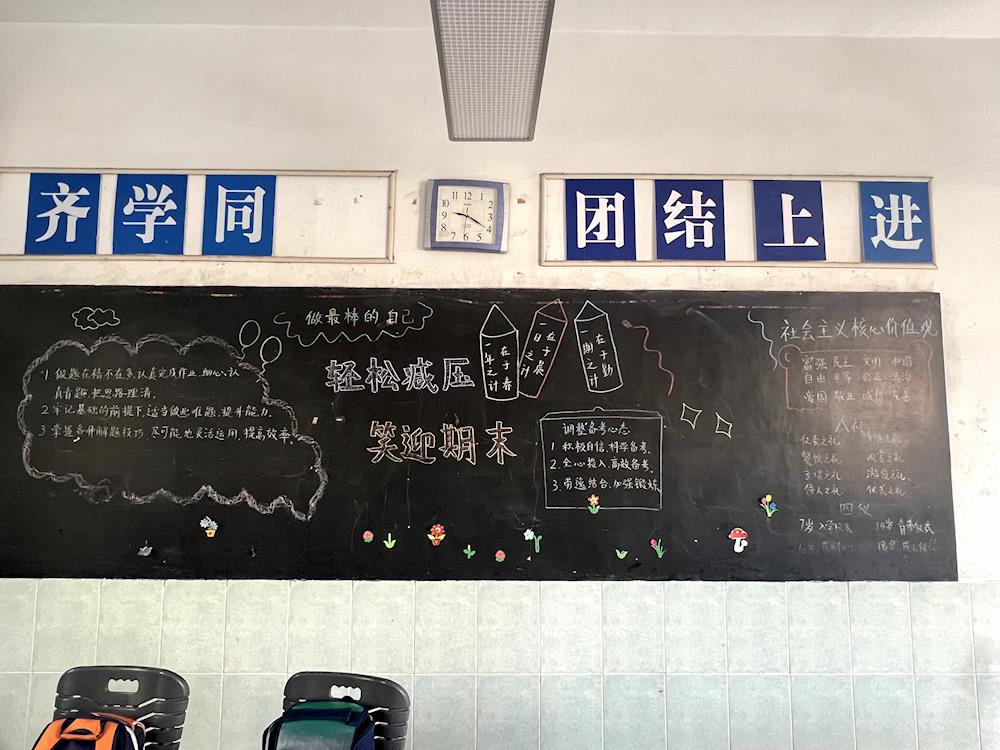 齐学同
团结上进
做最棒的自己
轻松减压
笑迎期末
1. 做题在精不在多,认真完成作业,细心、认
真看题,把思路理清.
2. 牢记基础的前提下,适当做些难题,提升能力.
3. 掌握各种解题技巧,尽可能地灵活运用,提高效率.
一年之计
在于春
一日之计
在于晨
一生之计
在于勤
调整备考心态
1. 积极自信,科学备考.
2. 全心投入,高效备考.
3. 劳逸结合,加强锻炼
社会主义核心价值观
富强 民主 文明 和谐
自由 平等 公正 法治
爱国 敬业 诚信 友善
八礼
仪表之礼
餐饮之礼 观赏之礼
言谈之礼 游览之礼
待人之礼 仪式之礼
四仪
7岁入学仪式 14岁青春仪式
18岁成人仪式